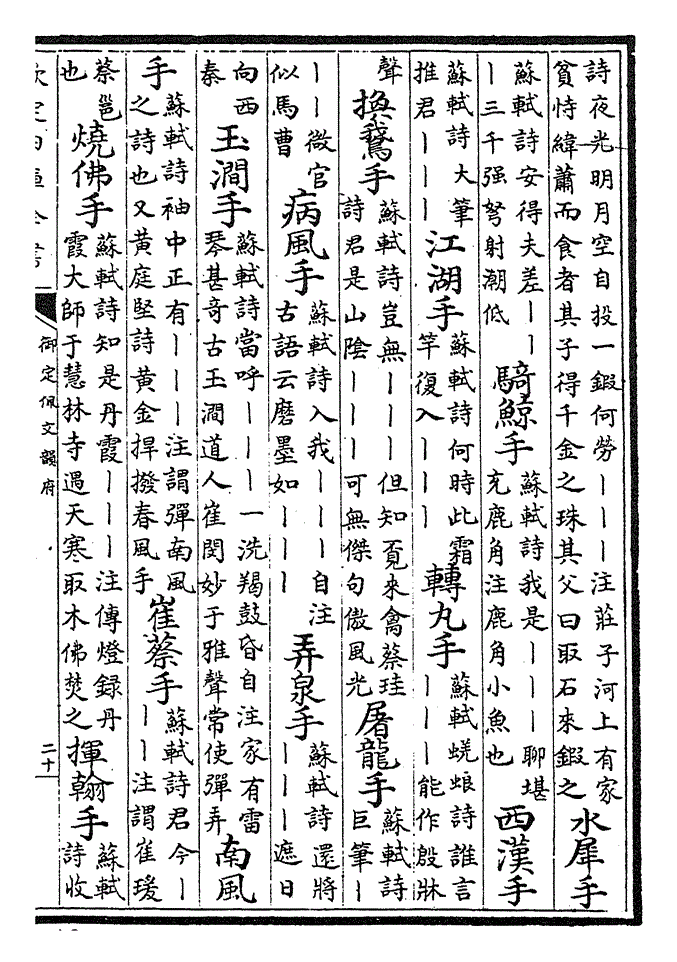 詩夜光明月空自投一鍜何勞丨丨丨注莊子河上有家
貧恃緯蕭而食者其子得千金之珠其父曰取石來鍜之
水犀手
蘇軾詩安得夫差丨丨
丨三千强弩射潮低
騎鯨手
蘇軾詩我是丨丨丨聊堪
充鹿角注鹿角小魚也
西漢手
蘇軾詩大筆
推君丨丨丨
江湖手
蘇軾詩何時此霜
竿復入丨丨丨
轉丸手
蘇軾蜣蜋詩誰言
丨丨丨能作殷牀
聲
換鵞手
蘇軾詩豈無丨丨丨但知覓來禽蔡珪
詩君是山陰丨丨丨可無傑句傲風光
屠龍手
蘇軾詩
巨筆丨
丨丨微官
似馬曹
病風手
蘇軾詩入我丨丨丨自注
古語云磨墨如丨丨丨
弄泉手
蘇軾詩還將
丨丨丨遮日
向西
秦
玉澗手
蘇軾詩當呼丨丨丨一洗羯鼓昏自注家有雷
琴甚奇古玉澗道人崔閑妙于雅聲常使彈弄
南風
手
蘇軾詩袖中正有丨丨丨注謂彈南風
之詩也又黄庭堅詩黄金捍撥春風手
崔蔡手
蘇軾詩君今丨
丨丨注謂崔瑗
蔡邕
也
燒佛手
蘇軾詩知是丹霞丨丨丨注傳燈録丹
霞大師于慧林寺遇天寒取木佛焚之
揮翰手
蘇軾
詩收
欽定四庫全書
御定佩文韻府
二十